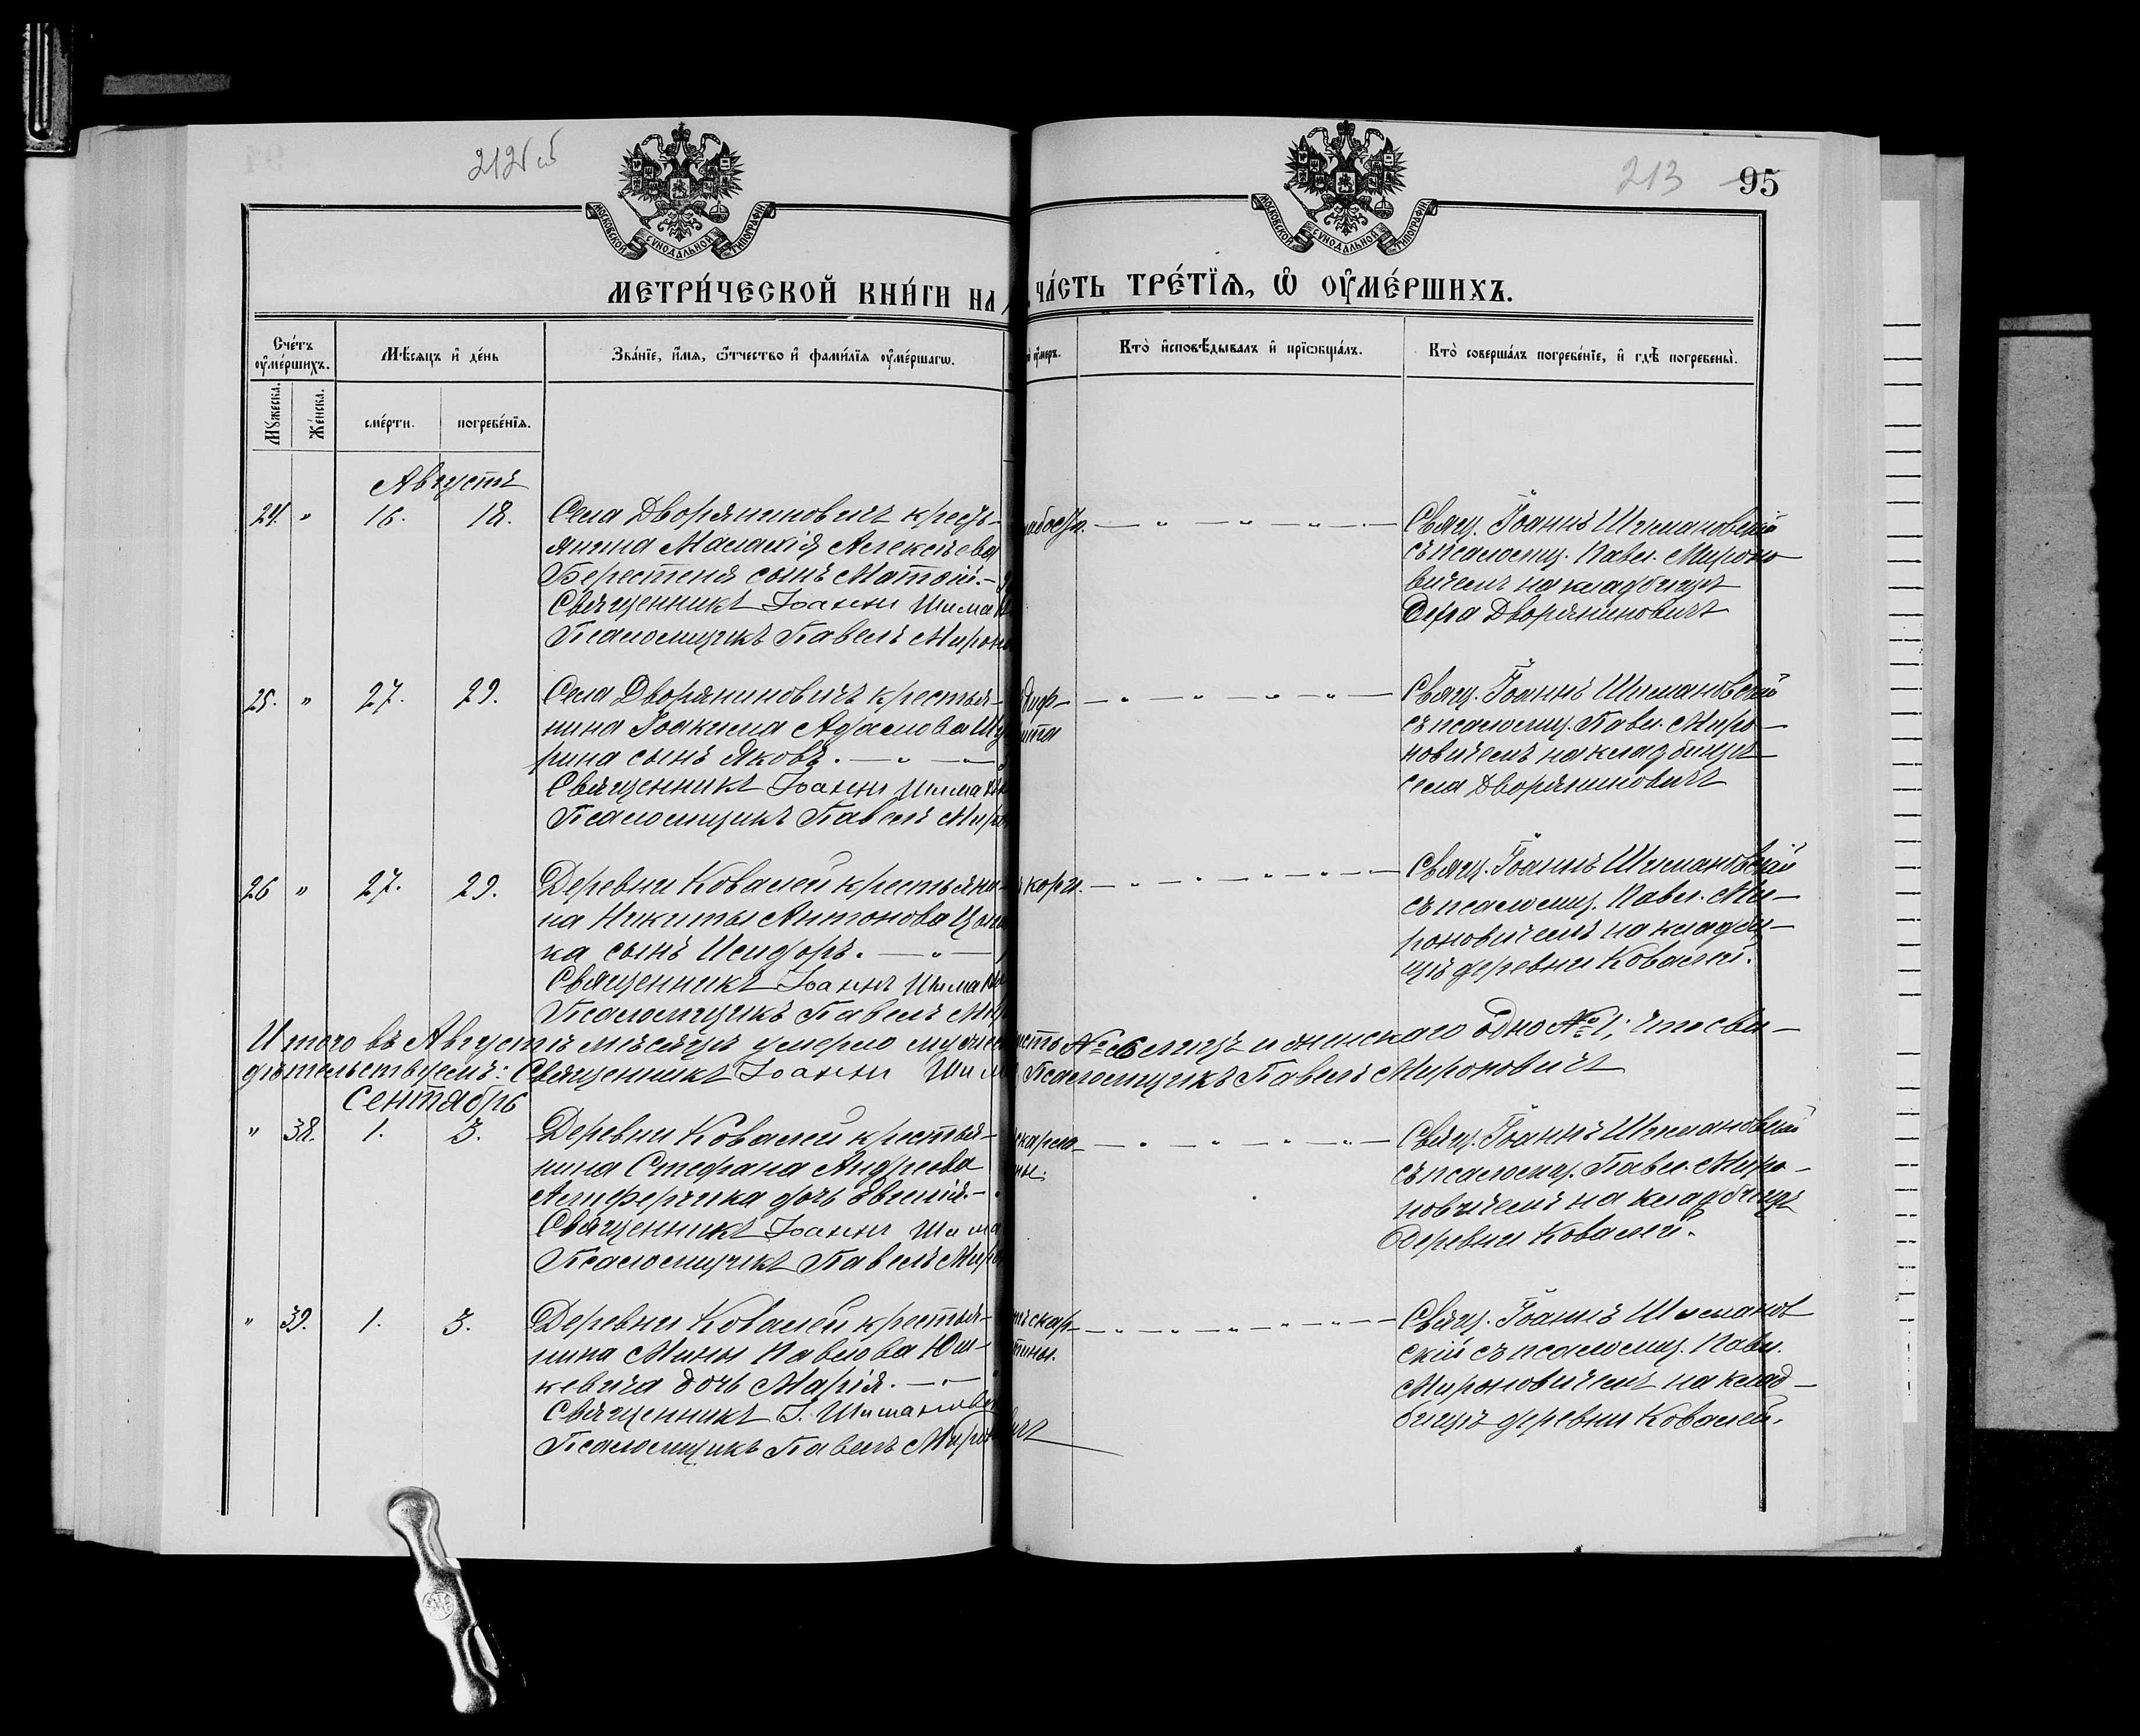 212 об
213 95
МОСКОВСКОЙ СУНОДАЛЬНОЙ ТИПОГРАФІИ
МОСКОВСКОЙ СУНОДАЛЬНОЙ ТИПОГРАФІИ
МЕТРИ́ЧЕСКОЙ КНИ́ГИ НА
ЧА́СТЬ ТРЕ́ТЇѦ, Ѡ ОУМЕ́РШИХЪ.
Сче́тъ оуме́ршихъ.
Мѣсяцъ и де́нь
Зва́нїе, и́мя, ѻ́тчество и фами́лїя оуме́ршагѡ.
оумеръ.
Кто̀ исповѣ́дывалъ и прїѡбща́лъ.
Кто̀ соверша́лъ погребе́нїе, и гдѣ̀ погребены̀.
Мꙋ́жеска.
Же́нска.
сме́рти.
погребе́нїя.
Августъ
24. " 16. 18. Села Дворяниновичъ кресть-
янина Малахія Алексѣева
Берестеня сынъ Матѳій. –
Священникъ Іоаннъ Шима
Псаломщикъ Павелъ Мироно
Свящ. Іоаннъ Шимановскій
съ псаломщ. Павл. Мироно-
вичемъ на кладбищѣ
Села Дворяниновичъ
25. " 27. 29. Села Дворяниновичъ крестья-
нина Іоакима Адамова Шу
рина сынъ Яковъ. — " —
Священникъ Іоаннъ Шима
Псаломщикъ Павелъ Миро
Диф-
ита
Свящ. Іоаннъ Шимановскій
съ псаломщ. Павл. Миро-
новичемъ на кладбищѣ
села Дворяниновичъ
26 " 27. 29. Деревни Ковалей крестьяни-
на Никиты Антонова
ка сынъ Исидоръ. — " —
Священникъ Іоаннъ Шима
Псаломщикъ Павелъ Ми
кори.
Свящ. Іоаннъ Шимановскій
съ псаломщ. Павл. Ми-
роновичемъ на кладби-
щѣ деревни Ковалей.
Итого въ Августѣ мѣсяцѣ умерло мужес
№ 6 лицъ и женскаго одно № 1; что сви-
дѣтельствуемъ: Священникъ Іоаннъ Шим
Псаломщикъ Павелъ Мироновичъ
Сентябрь
" 38. 1. 3. Деревни Ковалей крестья-
нина Стефана Андреева
Алиферчика дочь Евгенія. –
Священникъ Іоаннъ Шима
Псаломщикъ Павелъ Миро
скарла-
ны.
Свящ. Іоаннъ Шимановскій
съ псаломщ. Павл. Миро-
новичемъ на кладбищѣ
Деревни Ковалей.
" 39. 1. 3. Деревни Ковалей крестья-
нина Мины Павлова Юш-
кевича дочь Марія. — " —
Священникъ І. Шимановск
Псаломщикъ Павелъ Миро вичъ
скар-
тины.
Свящ. Іоаннъ Шиманов
скій съ псаломщ. Павл.
Мироновичемъ на клад-
бищѣ деревни Ковалей.